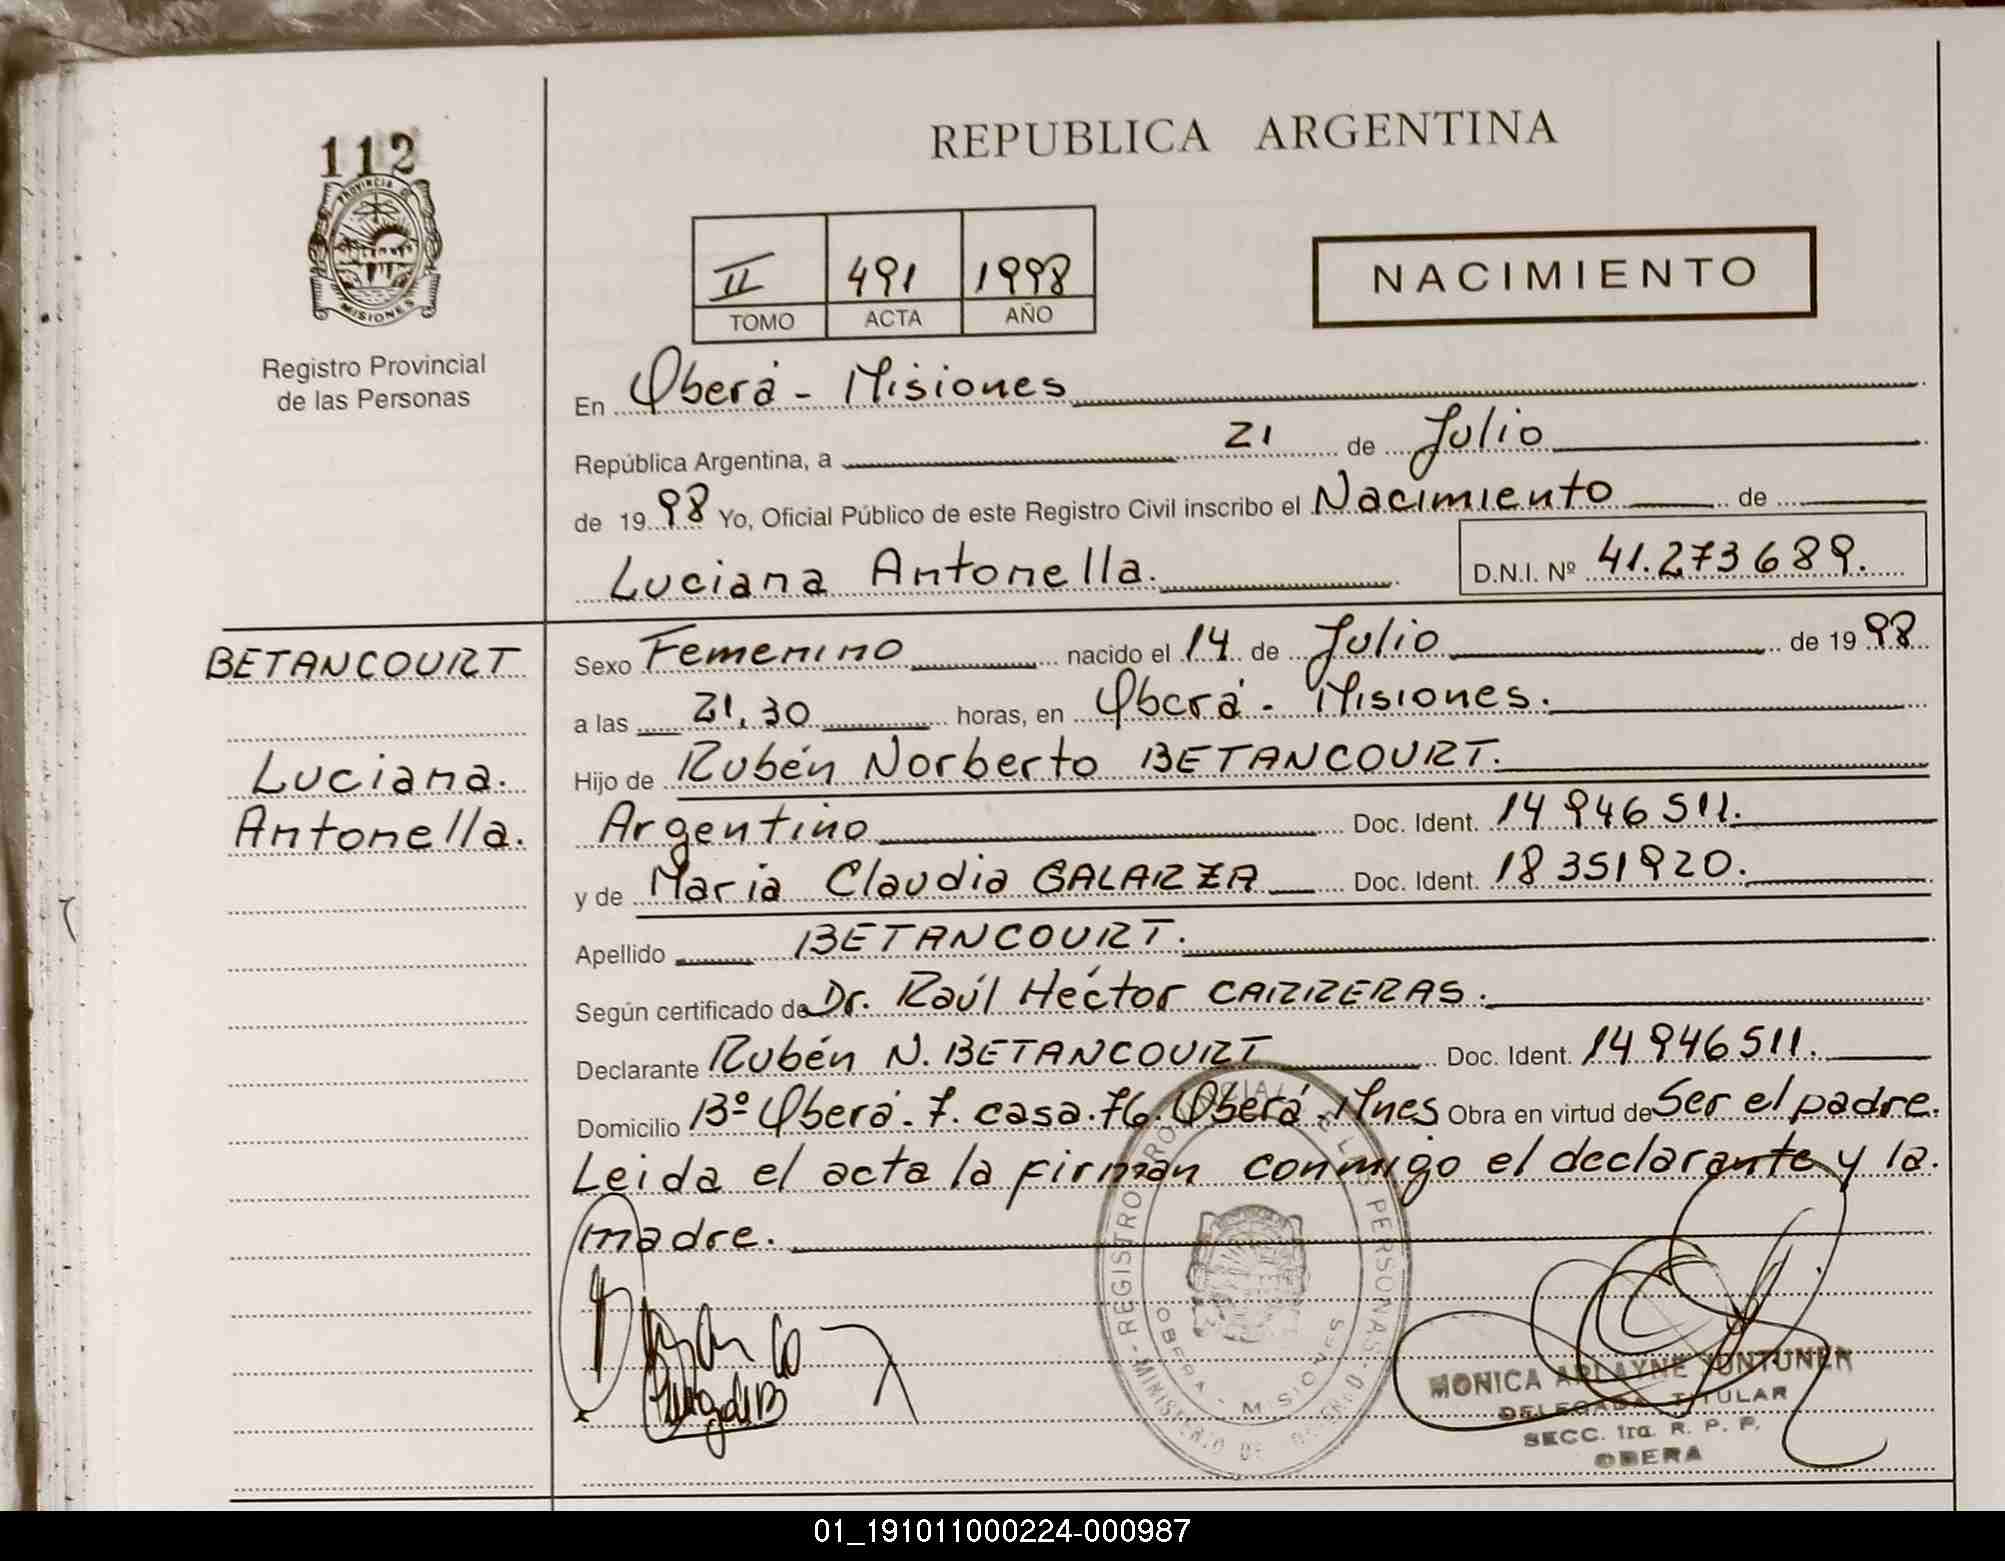 112
PROVINCIA DE
MISIONES
Registro Provincial
de las Personas
REPUBLICA ARGENTINA
II 491 1998
TOMO ACTA AÑO
NACIMIENTO
En Oberá - Misiones
República Argentina, a 21 de Julio
de 1998 Yo, Oficial Público de este Registro Civil inscribo el Nacimiento de
Luciana Antonella. D.N.I. Nº 41.273689.
BETANCOURT
Luciana.
Antonella.
Sexo Femenino nacido el 14 de Julio de 1998
a las 21,30 horas, en Oberá - Misiones.
Hijo de Rubén Norberto BETANCOURT.
Argentino Doc. Ident. 14946511.
y de Maria Claudia GALARZA Doc. Ident. 18351920.
Apellido BETANCOURT.
Según certificado de Dr. Raúl Héctor CARRERAS.
Declarante Rubén N. BETANCOURT Doc. Ident. 14946511.
Domicilio Bº Oberá. 7. casa. 76. Oberá. Mnes Obra en virtud de Ser el padre.
Leida el acta la firman conmigo el declarante y la.
madre.
REGISTRO LAS PERSONAS
MINISTERIO DE GOBIERNO
OBERA - MISIONES
MONICA ARLAYNE
DELEGADA TITULAR
SECC. 1ra. R. P. P.
OBERA
01_191011000224-000987